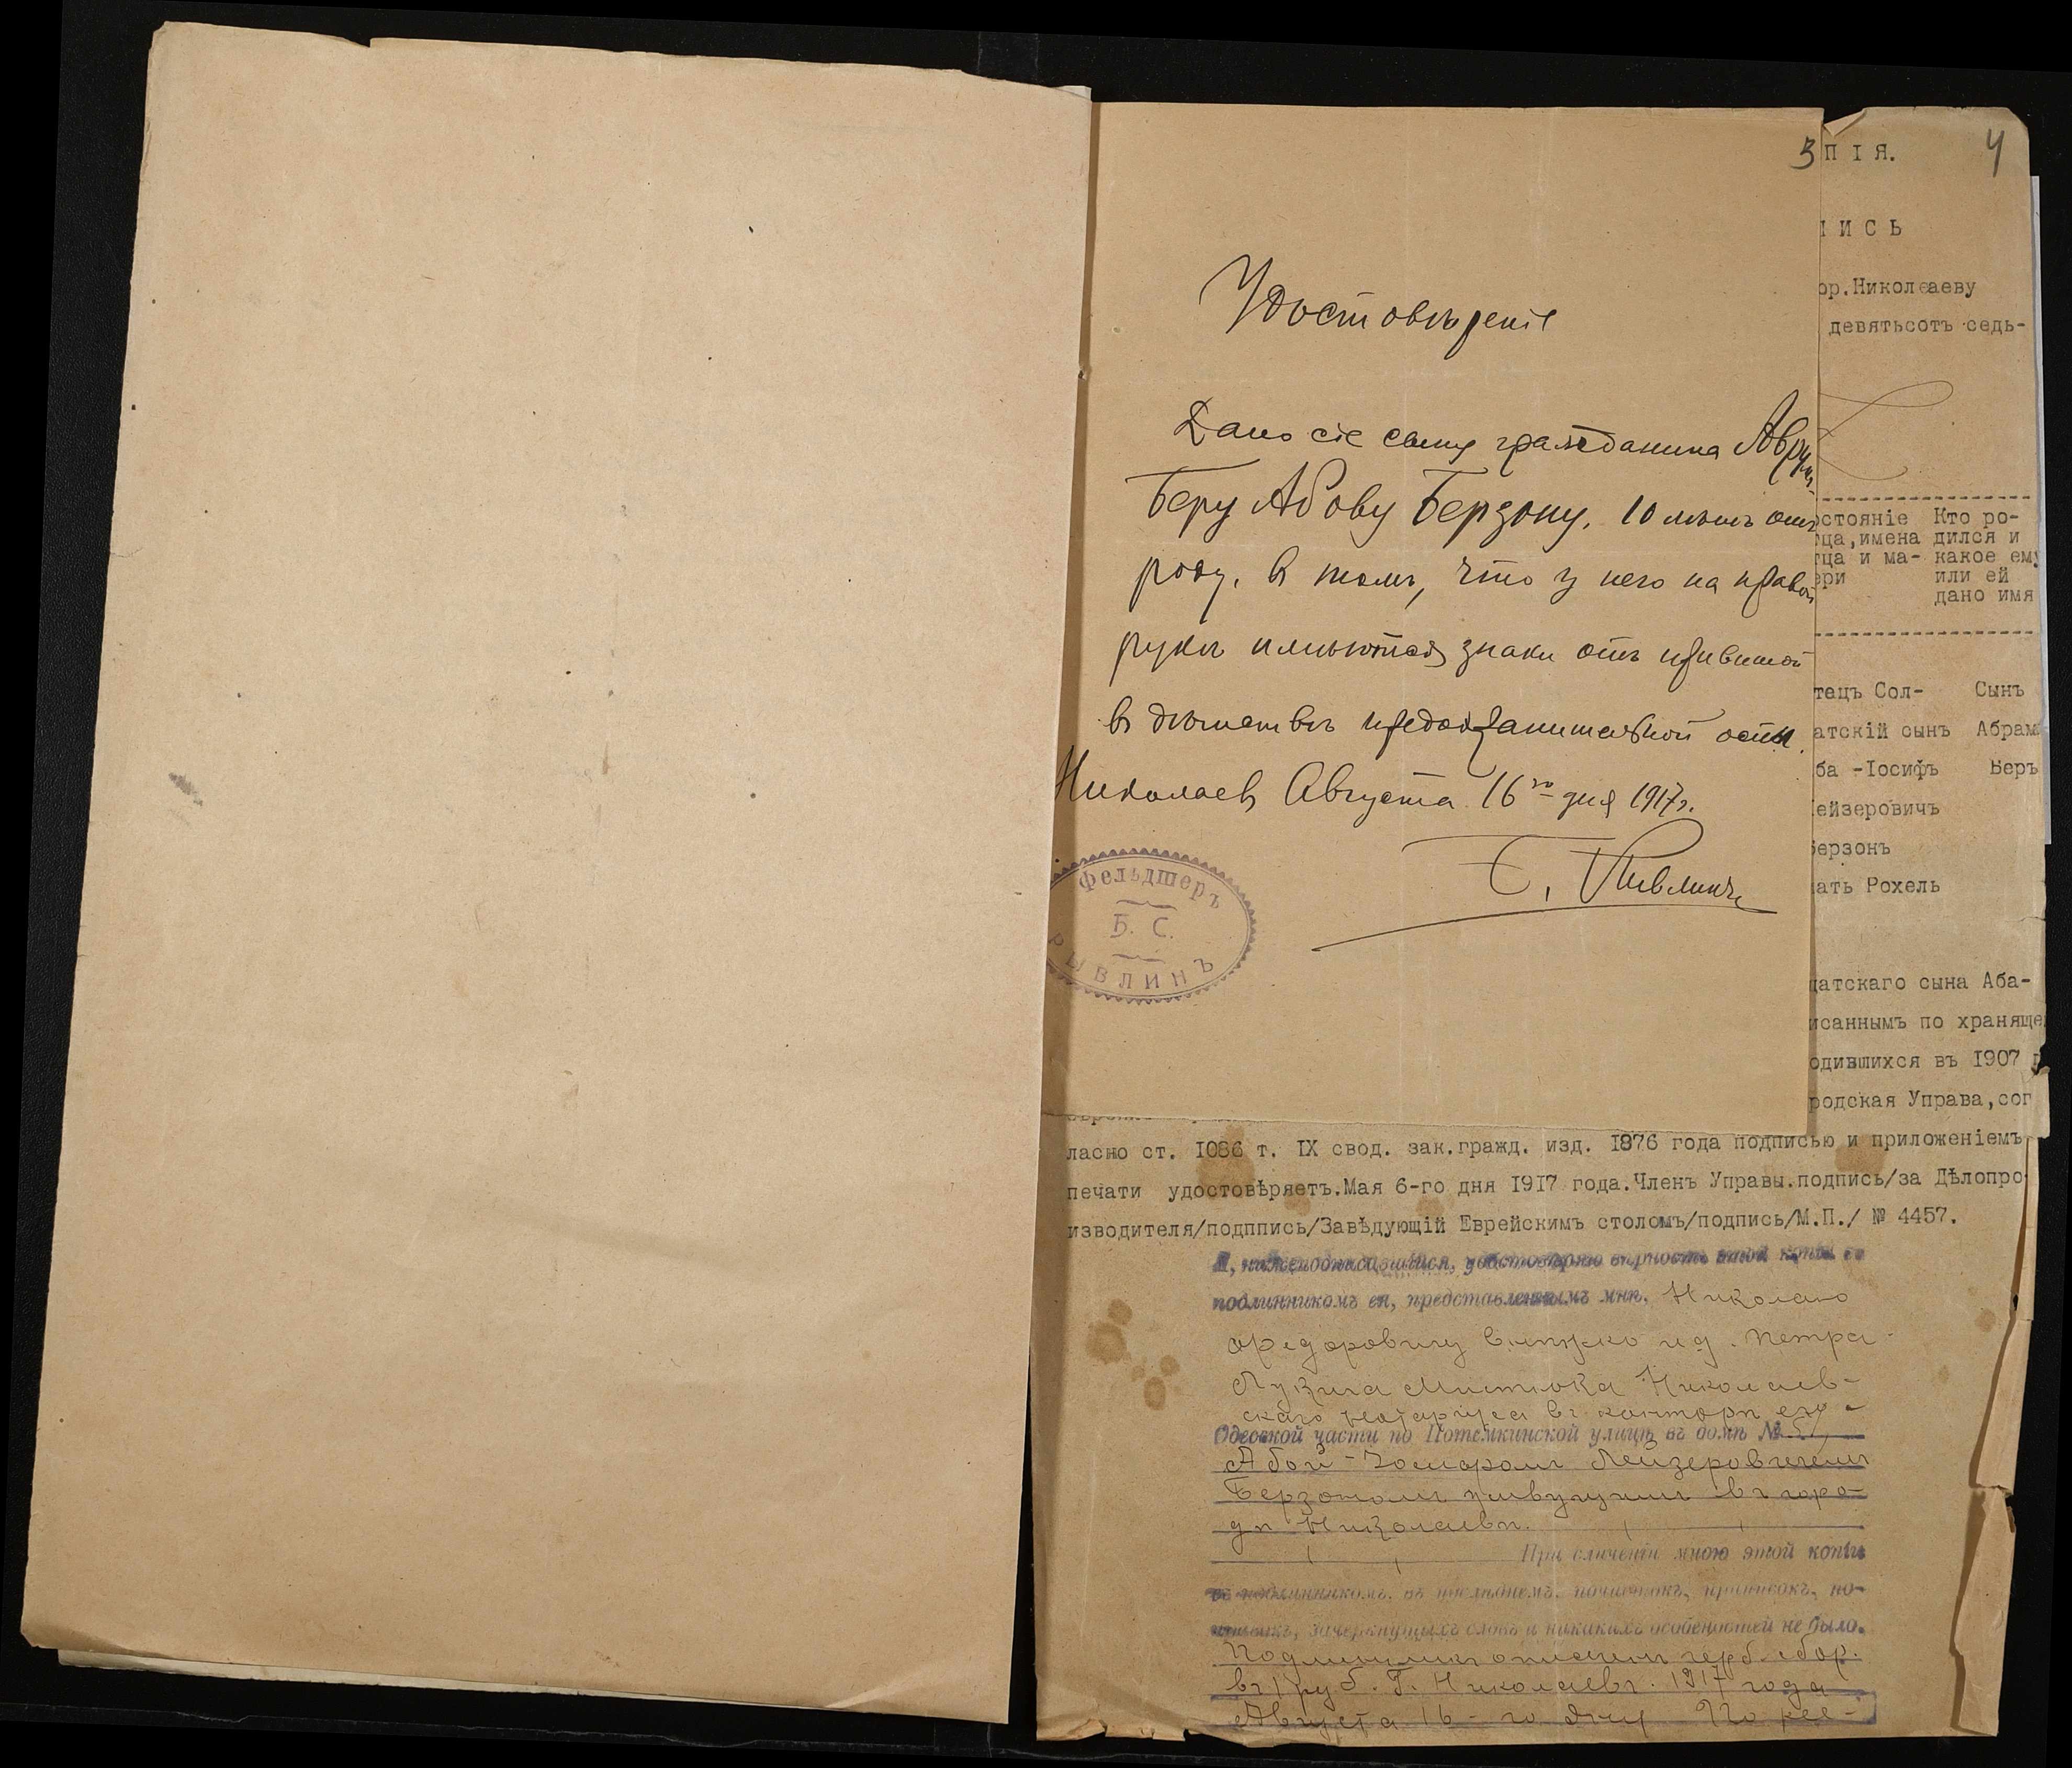 3
4
Удостовѣреніе
Дано сіе сыну гражданина Аврум
Беру Абову Берзону, 10 лѣтъ отъ
роду, въ томъ, что у него на правой
рукѣ имѣются знаки отъ привитой
въ дѣтствѣ предохранительной оспы.
Николаевъ Августа 16го дня 1917г.
Б. Рывлинъ
Фельдшеръ
Б. С.
РЫВЛИНЪ
ПІЯ.
ИСЬ
ор.Николаеву
девятьсотъ седь-
стояніе Кто ро-
ца,имена дился и
ца и ма- какое ему
ери или ей
дано имя
тецъ Сол- Сынъ
атскій сынъ Абрам
ба -Іосифъ Беръ
ейзеровичъ
ерзонъ
ать Рохель
датскаго сына Аба-
исаннымъ по хранящей
одившихся въ 1907 г
родская Управа,сог
ласно ст. 1086 т. IX свод. зак.гражд. изд. 1876 года подписью и приложеніемъ
печати удостовѣряетъ.Мая 6-го дня 1917 года.Членъ Управы.подпись/за Дѣлопро-
изводителя/подппись/Завѣдующій Еврейскимъ столомъ/подпись/М.П./ № 4457.
Я, нижеподписавшійся, удостовѣряю вѣрность этой копіи съ
подлинникомъ ея, представленнымъ мнѣ, Николаю
Федоровичу и.д. Петра
Лукича Николаев-
скаго нотаріуса въ конторѣ его
Одесской части по Потемкинской улицѣ въ домѣ №
Абой-Іосифомъ Лейзеровичемъ
Берзономъ живущимъ въ горо-
дѣ Николаевѣ.
При сличеніи мною этой копіи
съ подлинникомъ, въ послѣднемъ, почистокъ, приписокъ, по-
мѣтокъ, зачеркнутыхъ словъ и никакихъ особенностей не было.
Подлинникъ оплаченъ герб. сбор.
въ 1 руб. Г. Николаевъ. 1917 года
Августа 16-го дня По рее-